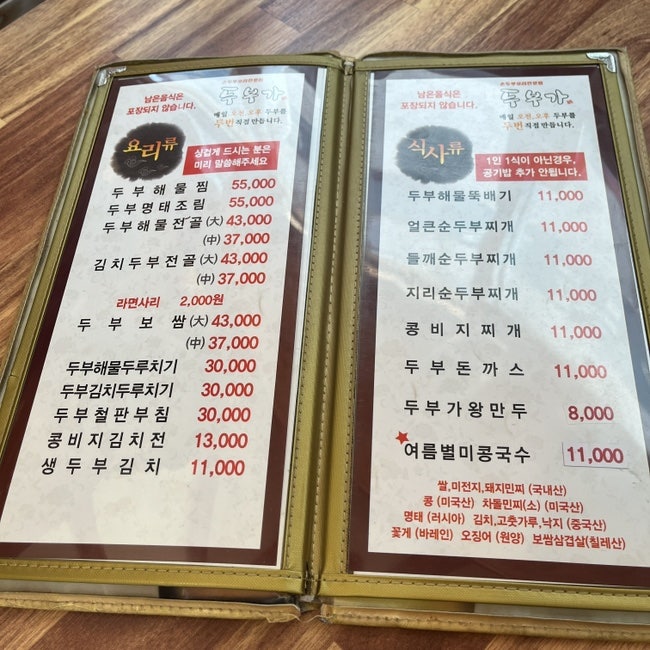 남은음식은
포장되지 않습니다.
손두부요리전문점
두부가
매일 오전,오후 두부를
두번 직접 만듭니다.
요리류
싱겁게 드시는 분은
미리 말씀해주세요
두부해물찜 55,000
두부명태조림 55,000
두부해물전골 (大) 43,000
(中) 37,000
김치두부전골 (大) 43,000
(中) 37,000
라면사리 2,000원
두부보쌈 (大) 43,000
(中) 37,000
두부해물두루치기 30,000
두부김치두루치기 30,000
두부철판부침 30,000
콩비지김치전 13,000
생두부김치 11,000
남은음식은
포장되지 않습니다.
손두부요리전문점
두부가
매일 오전,오후 두부를
두번 직접 만듭니다.
식사류
1인 1식이 아닌경우,
공기밥 추가 안됩니다.
두부해물뚝배기 11,000
얼큰순두부찌개 11,000
들깨순두부찌개 11,000
지리순두부찌개 11,000
콩비지찌개 11,000
두부돈까스 11,000
두부가왕만두 8,000
여름별미콩국수 11,000
쌀,미전지,돼지민찌 (국내산)
콩 (미국산) 차돌민찌(소) (미국산)
명태 (러시아) 김치,고춧가루,낙지 (중국산)
꽃게 (바레인) 오징어 (원양) 보쌈삼겹살(칠레산)